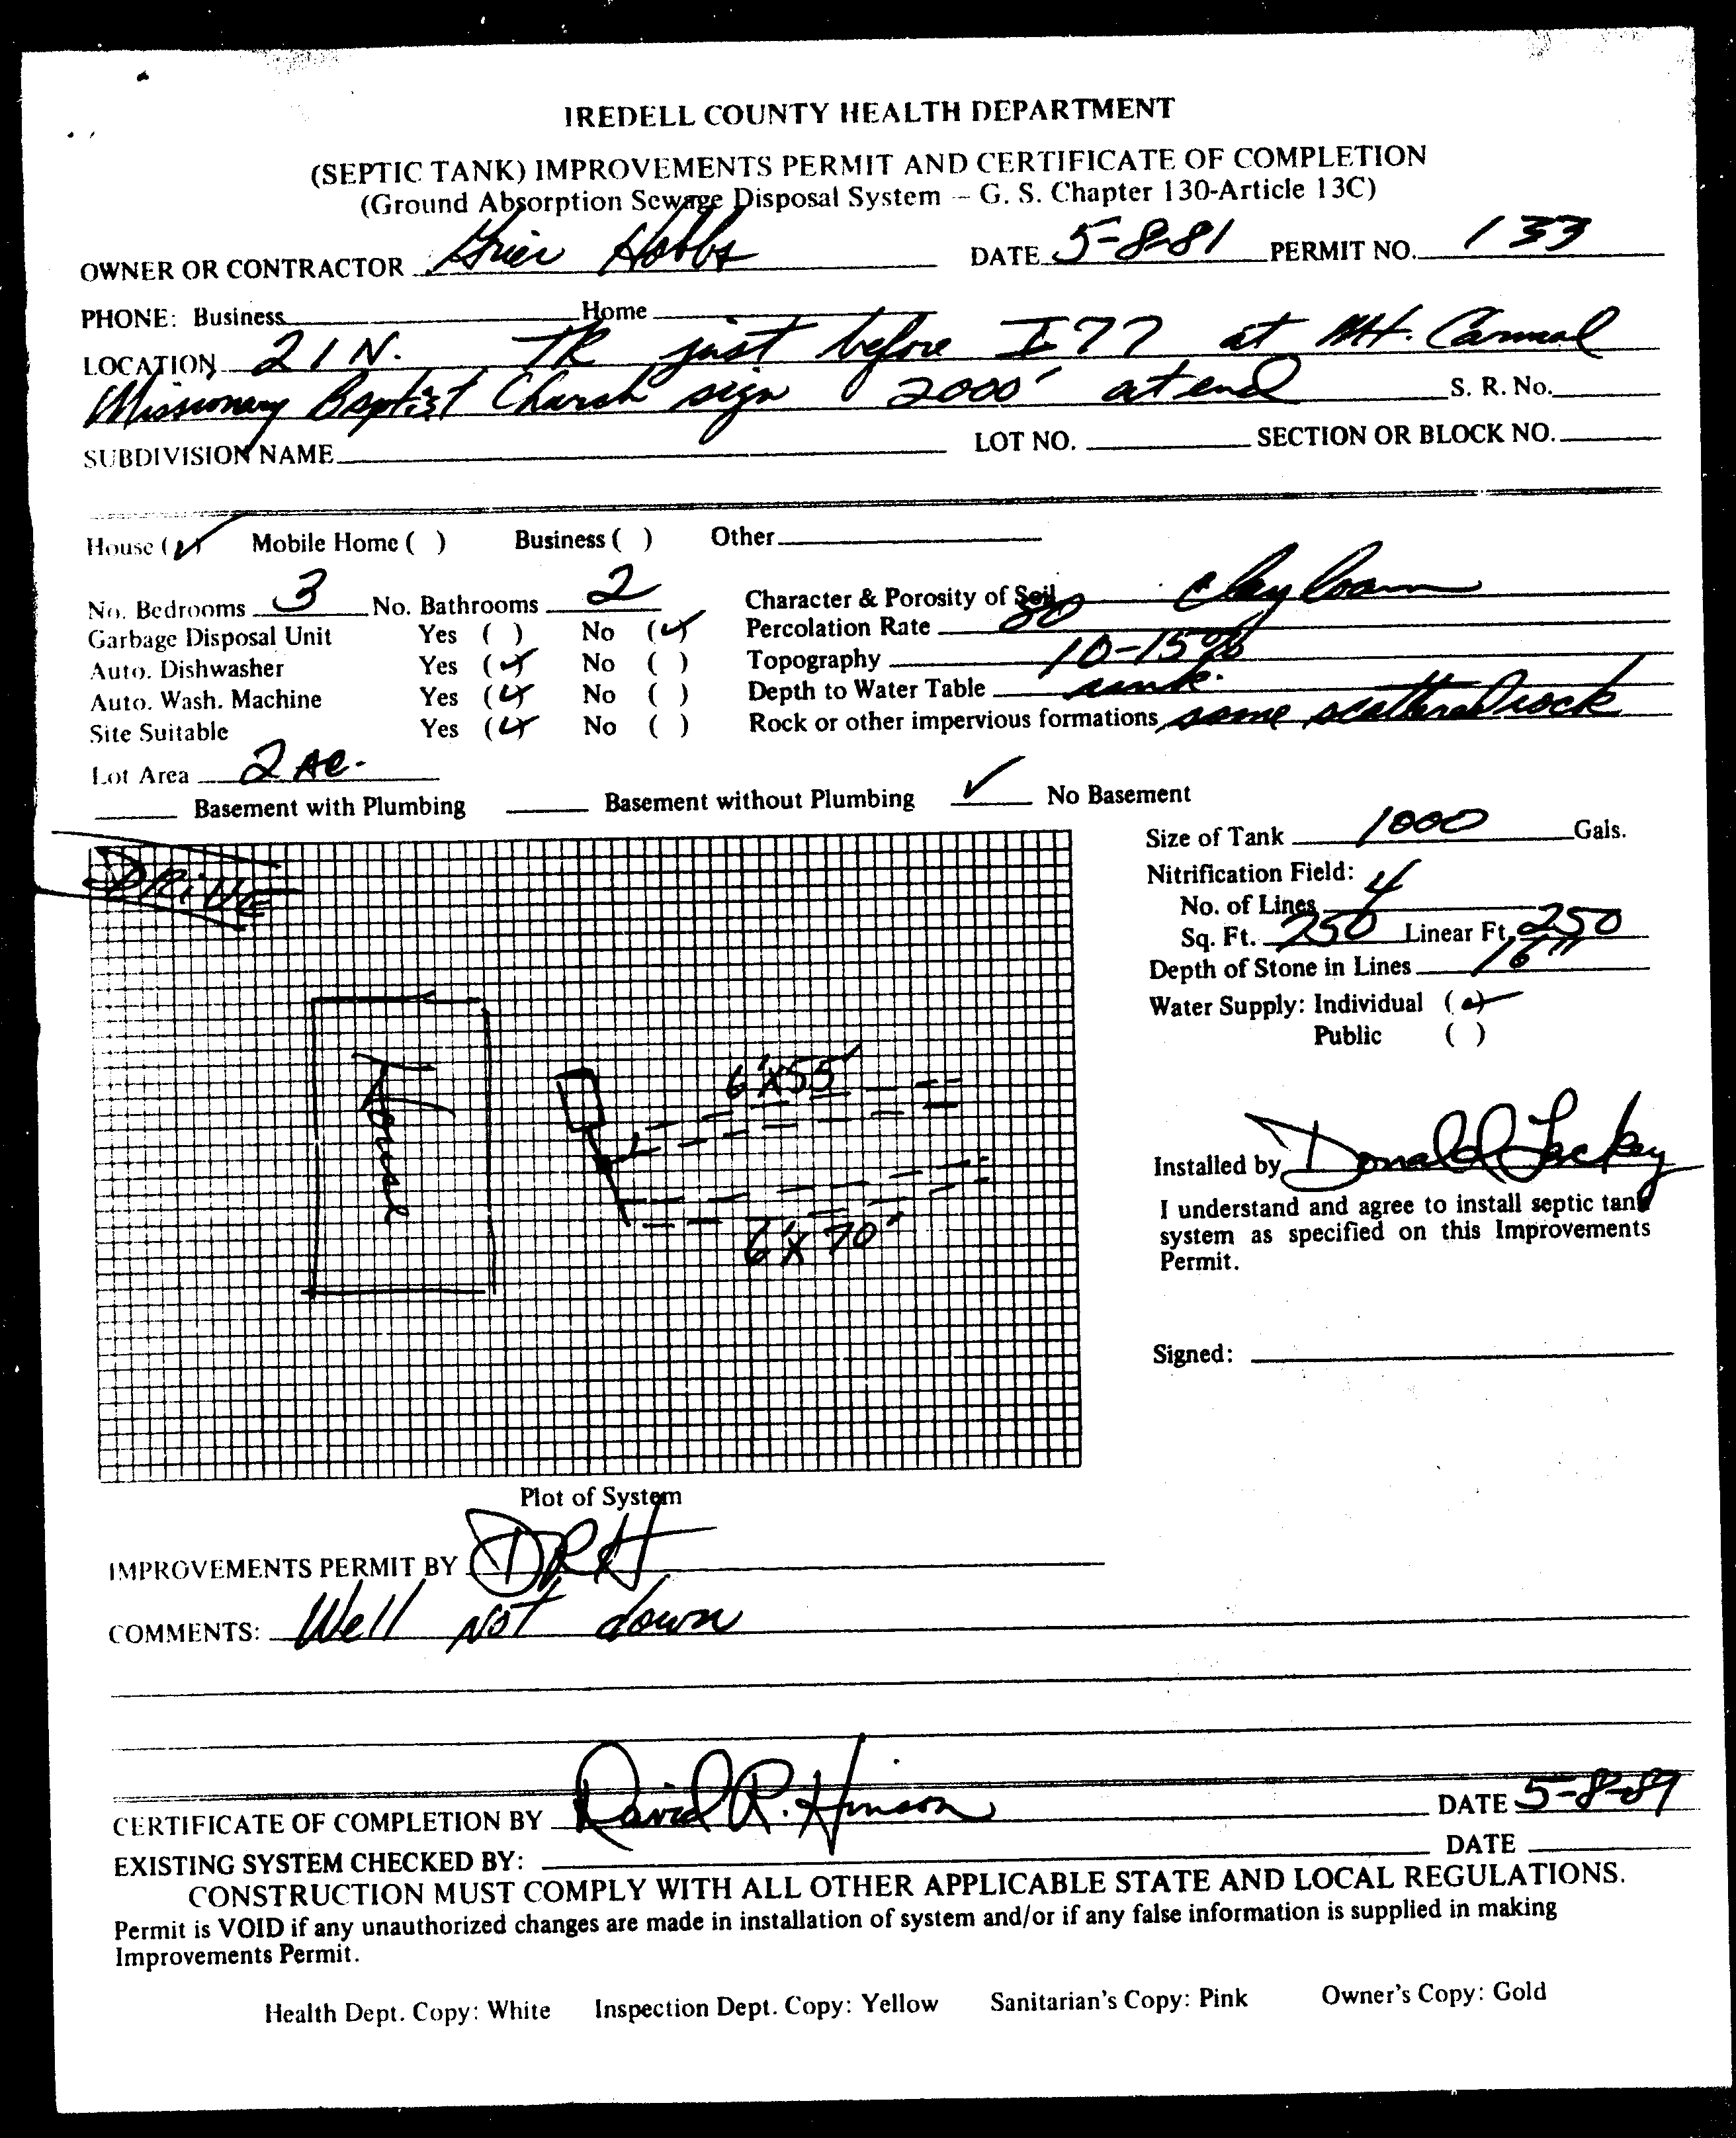 IREDELL COUNTY HEALTH DEPARTMENT
(SEPTIC TANK) IMPROVEMENTS PERMIT AND CERTIFICATE OF COMPLETION
(Ground Absorption Sewage Disposal System -- G. S. Chapter 130-Article 13C)
OWNER OR CONTRACTOR Grier Hobbs DATE 5-8-81 PERMIT NO. 133
PHONE: Business Home
LOCATION 21 N. TR just before I 77 at Mt. Carmel
Missionary Baptist Church sign 2000' at end S. R. No.
SUBDIVISION NAME LOT NO. SECTION OR BLOCK NO.
House (✓) Mobile Home ( ) Business ( ) Other
No. Bedrooms 3 No. Bathrooms 2 Character & Porosity of Soil clay loam
Garbage Disposal Unit Yes ( ) No (✓) Percolation Rate
Auto. Dishwasher Yes (✓) No ( ) Topography 10-15%
Auto. Wash. Machine Yes (✓) No ( ) Depth to Water Table
Site Suitable Yes (✓) No ( ) Rock or other impervious formations some scattered rock
Lot Area 2 Ac.
Basement with Plumbing Basement without Plumbing ✓ No Basement
Size of Tank 1000 Gals.
Nitrification Field:
No. of Lines 4
Sq. Ft. 750 Linear Ft. 250
Depth of Stone in Lines 16"
Water Supply: Individual (✓)
Public ( )
DRIVE
House
6'x55'
6'x70'
Installed by Donald Lackey
I understand and agree to install septic tank
system as specified on this Improvements
Permit.
Signed:
Plot of System
IMPROVEMENTS PERMIT BY DRH
COMMENTS: Well not down
CERTIFICATE OF COMPLETION BY David R. Hinson DATE 5-8-81
EXISTING SYSTEM CHECKED BY: DATE
CONSTRUCTION MUST COMPLY WITH ALL OTHER APPLICABLE STATE AND LOCAL REGULATIONS.
Permit is VOID if any unauthorized changes are made in installation of system and/or if any false information is supplied in making
Improvements Permit.
Health Dept. Copy: White Inspection Dept. Copy: Yellow Sanitarian's Copy: Pink Owner's Copy: Gold